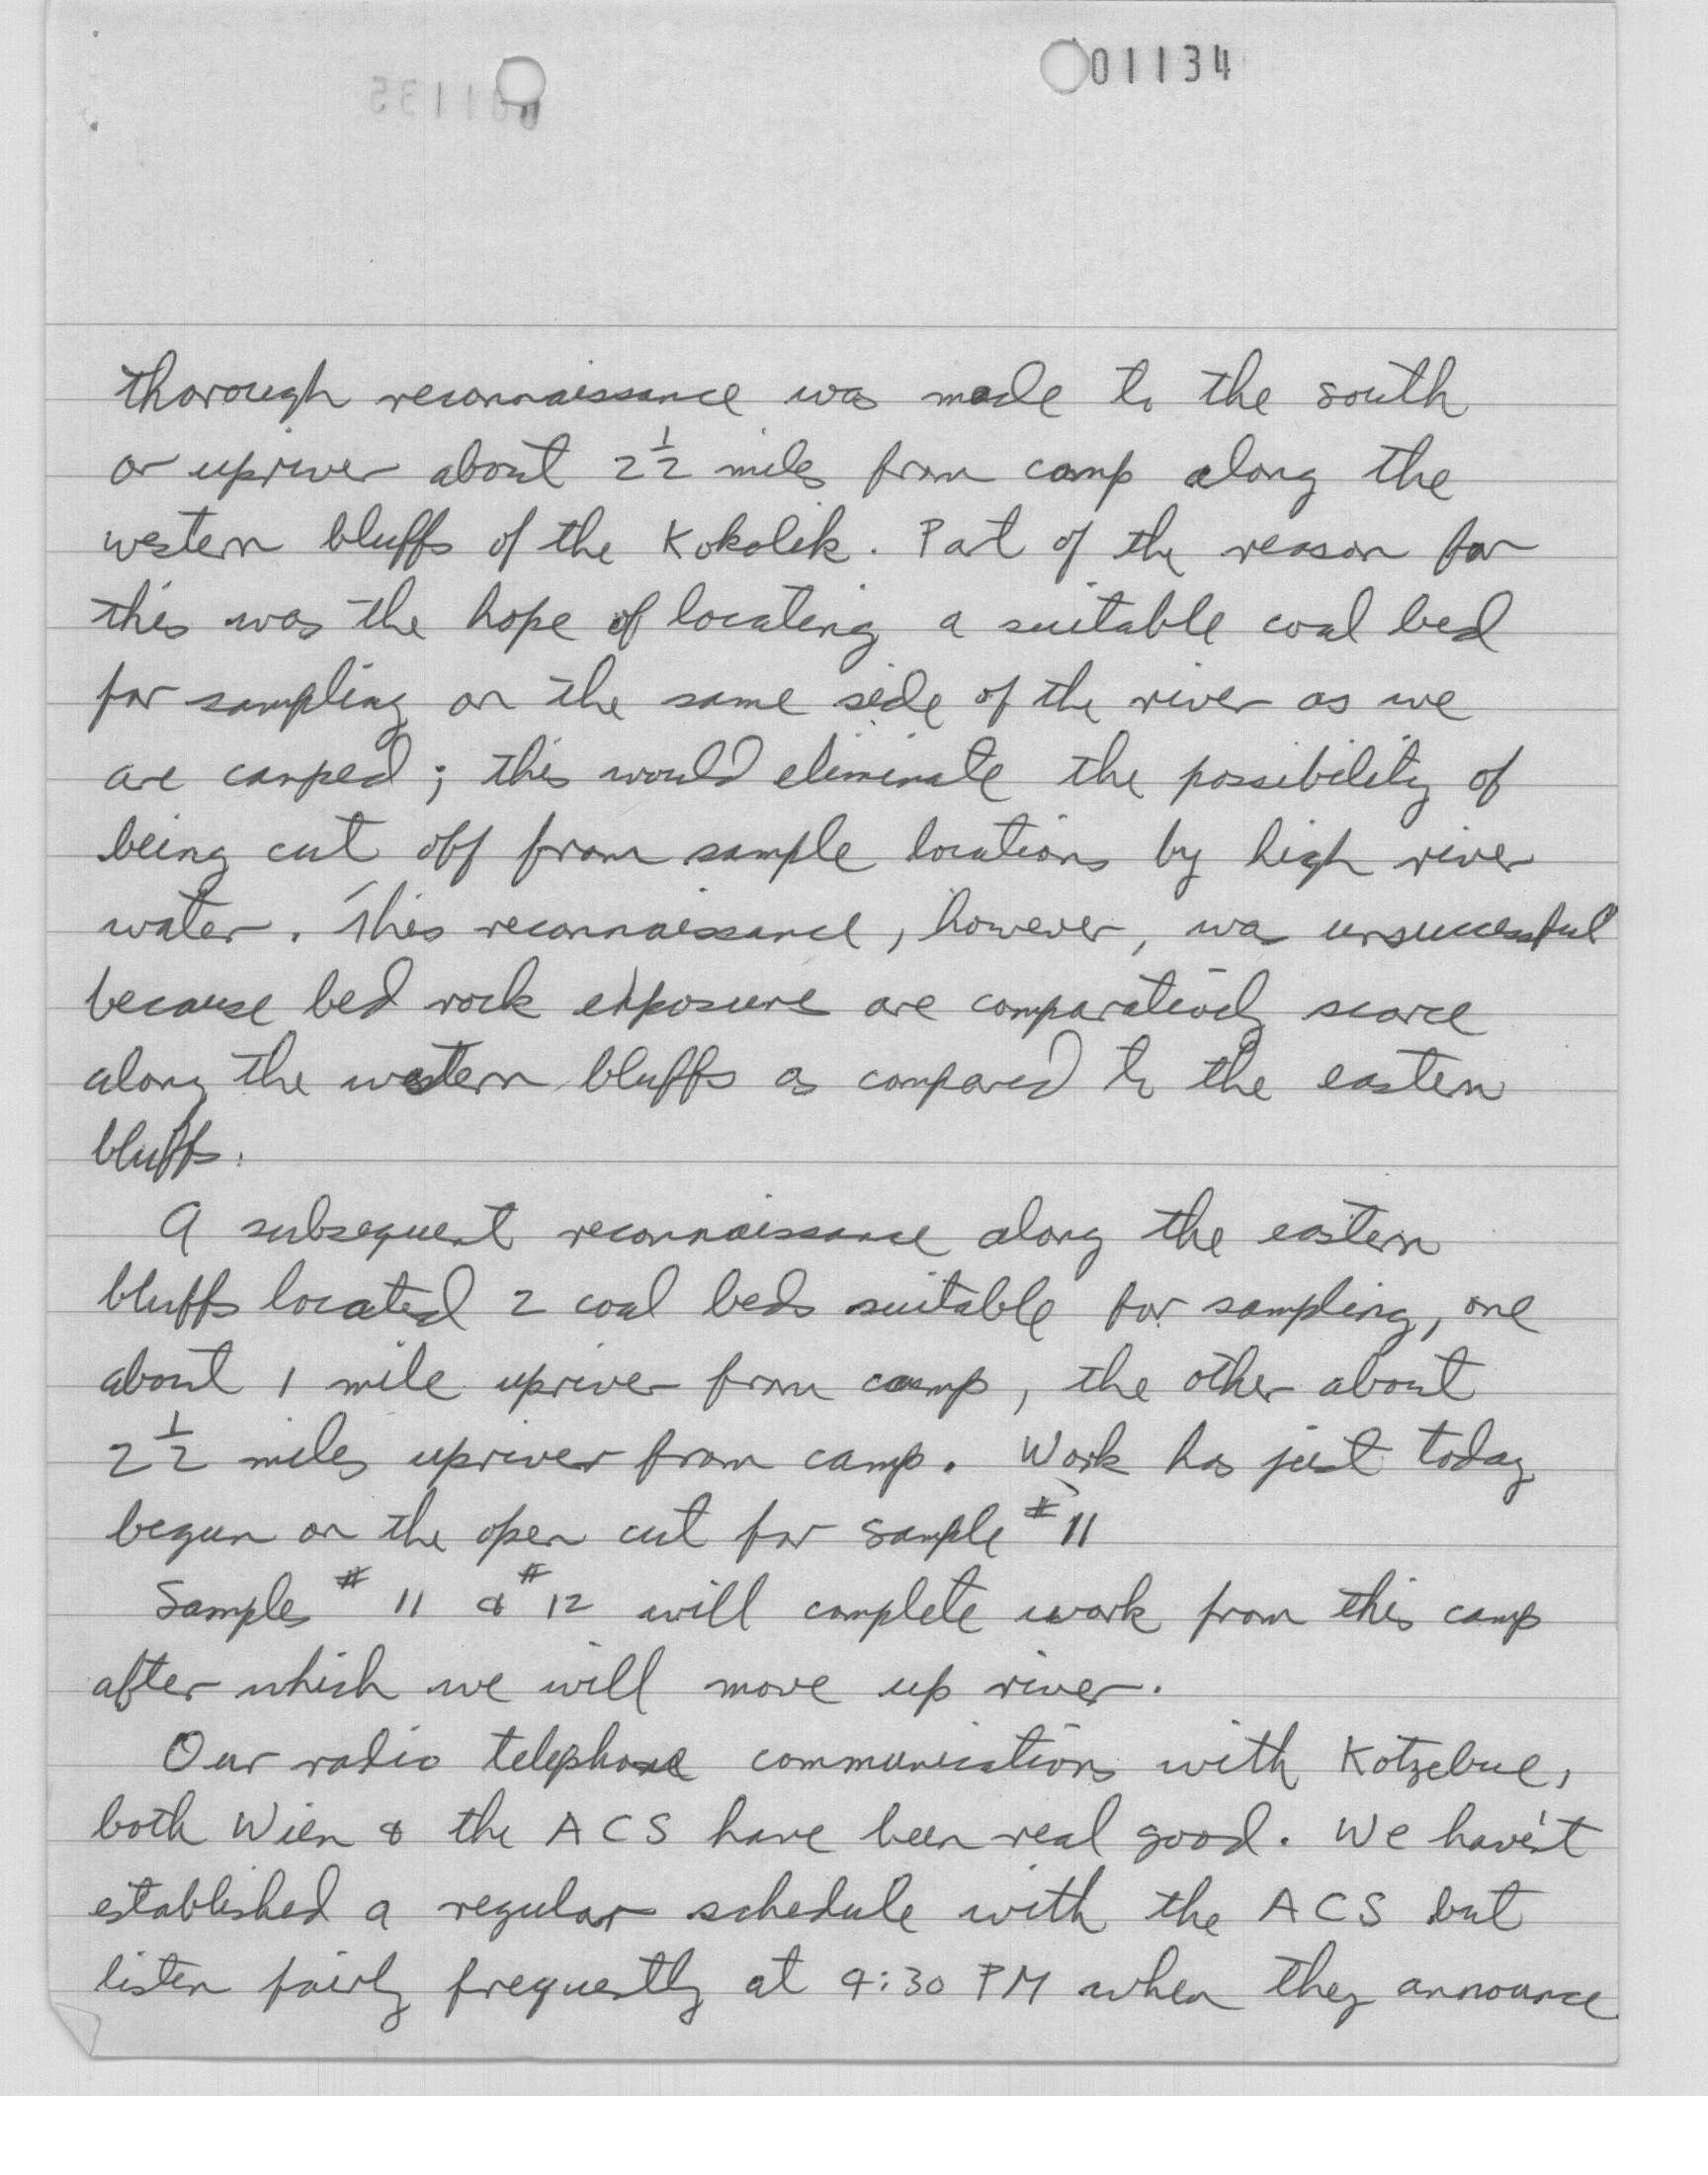 01134
001135
thorough reconnaissance was made to the south
or upriver about 2 1/2 miles from camp along the
western bluffs of the Kokolik. Part of the reason for
this was the hope of locating a suitable coal bed
for sampling on the same side of the river as we
are camped; this would eliminate the possibility of
being cut off from sample locations by high river
water. This reconnaissance, however, was unsuccessful
because bed rock exposure are comparatively scarce
along the western bluffs as compared to the eastern
bluffs.
A subsequent reconnaissance along the eastern
bluffs located 2 coal beds suitable for sampling, one
about 1 mile upriver from camp, the other about
2 1/2 miles upriver from camp. Work has just today
begun on the open cut for sample #11
Samples #11 & #12 will complete work from this camp
after which we will move up river.
Our radio telephone communications with Kotzebue,
both Wien & the ACS have been real good. We have't
established a regular schedule with the ACS but
listen fairly frequently at 9:30 PM when they announce